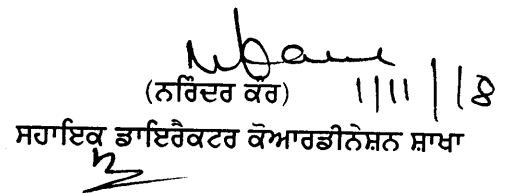 (ਨਰਿੰਦਰ ਕੌਰ) 1/11/18
ਸਹਾਇਕ ਡਾਇਰੈਕਟਰ ਕੋਆਰਡੀਨੇਸ਼ਨ ਸ਼ਾਖਾ